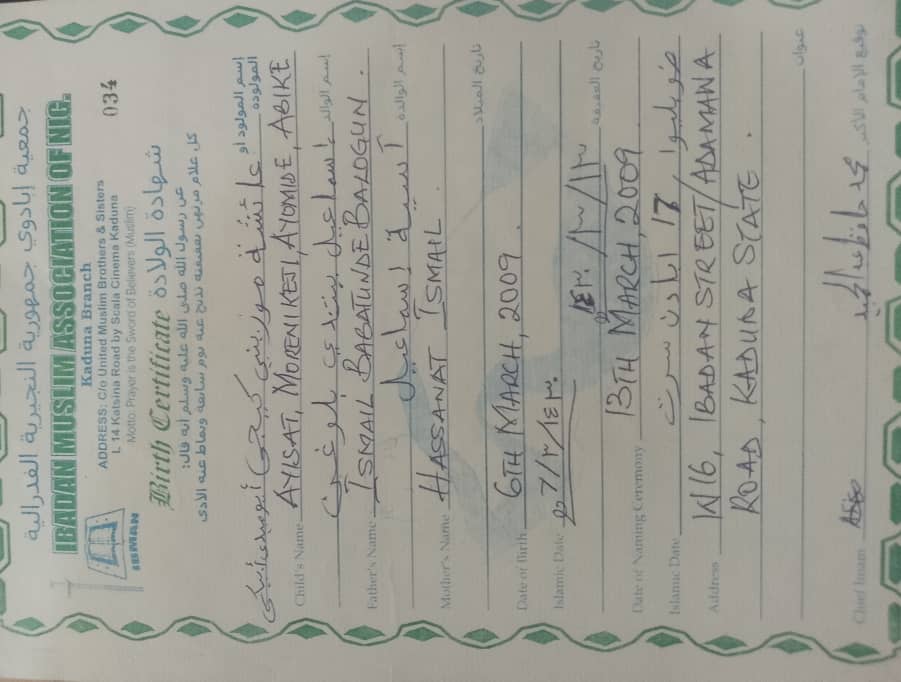 جمعية إبادوي جمهورية النجيرية الفدرالية
IBADAN MUSLIM ASSOCIATION OF NIG.
Kaduna Branch
034
ADDRESS: C/o United Muslim Brothers & Sisters
L 14 Katsina Road by Scala Cinema Kaduna
Motto: Prayer is the Sword of Believers (Muslim)
IBMAN
Birth Certificate شهادة الولادة
عن رسول الله صلى الله عليه وسلم أنه قال:
كل غلام مرتهن بعقيقته تذبح عنه يوم سابعه ويماط عنه الأذى
إسم المولود او
المولودة
Child's Name AYISAT, MORENIKEJI, AYOMIDE, ABIKE
إسم الوالد
Father's Name ISMAIL BABATUNDE BALOGUN.
إسم الوالدة آسية إسماعيل
Mother's Name HASSANAT ISMAIL.
تاريخ الميلاد
Date of Birth 6TH MARCH, 2009.
Islamic Date
تاريخ العقيقة
Date of Naming Ceremony 13TH MARCH 2009
Islamic Date
Address W16, IBADAN STREET/ADAMAWA
ROAD, KADUNA STATE.
عنوان
Chief Imam
توقيع الإمام الأكبر